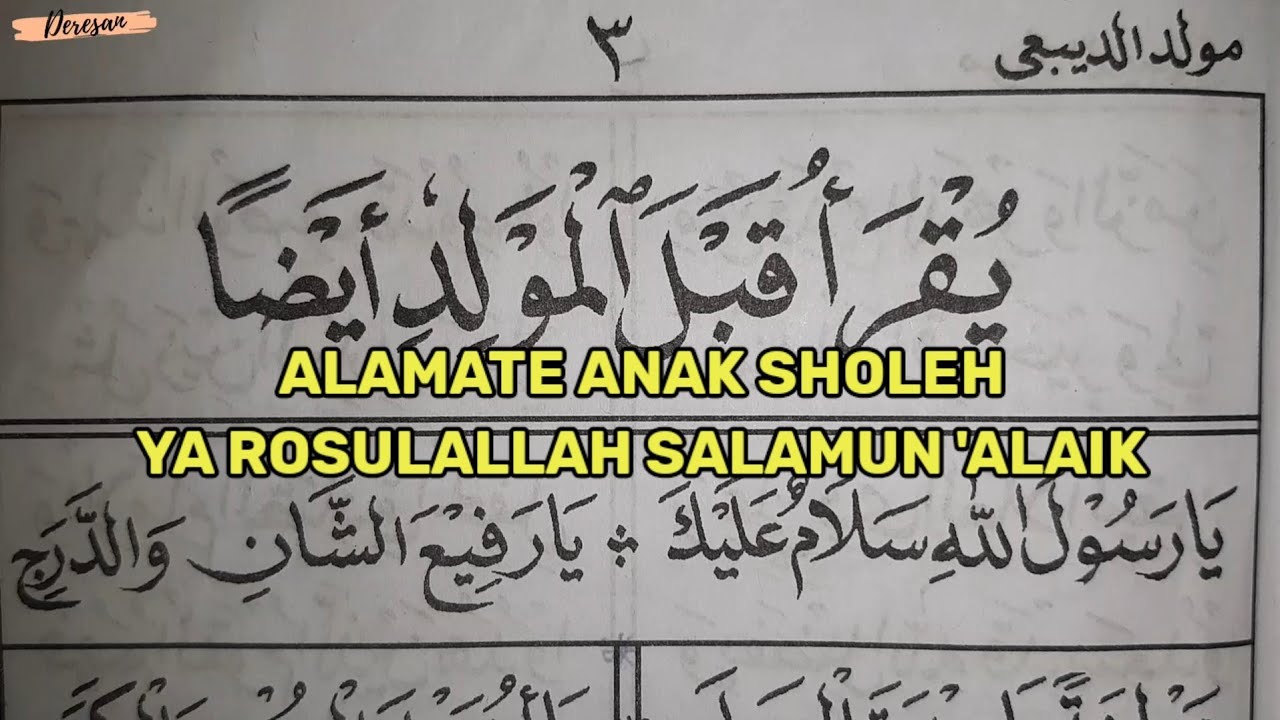 Deresan
مولد الديبعي ٣
يُقْرَأُ قَبْلَ ٱلْمَوْلِدِ أَيْضًا
ALAMATE ANAK SHOLEH
YA ROSULALLAH SALAMUN 'ALAIK
يَا رَسُوْلَ اللّٰهِ سَلَامٌ عَلَيْكَ ∴ يَا رَفِيْعَ الشَّانِ وَالدَّرَجِ